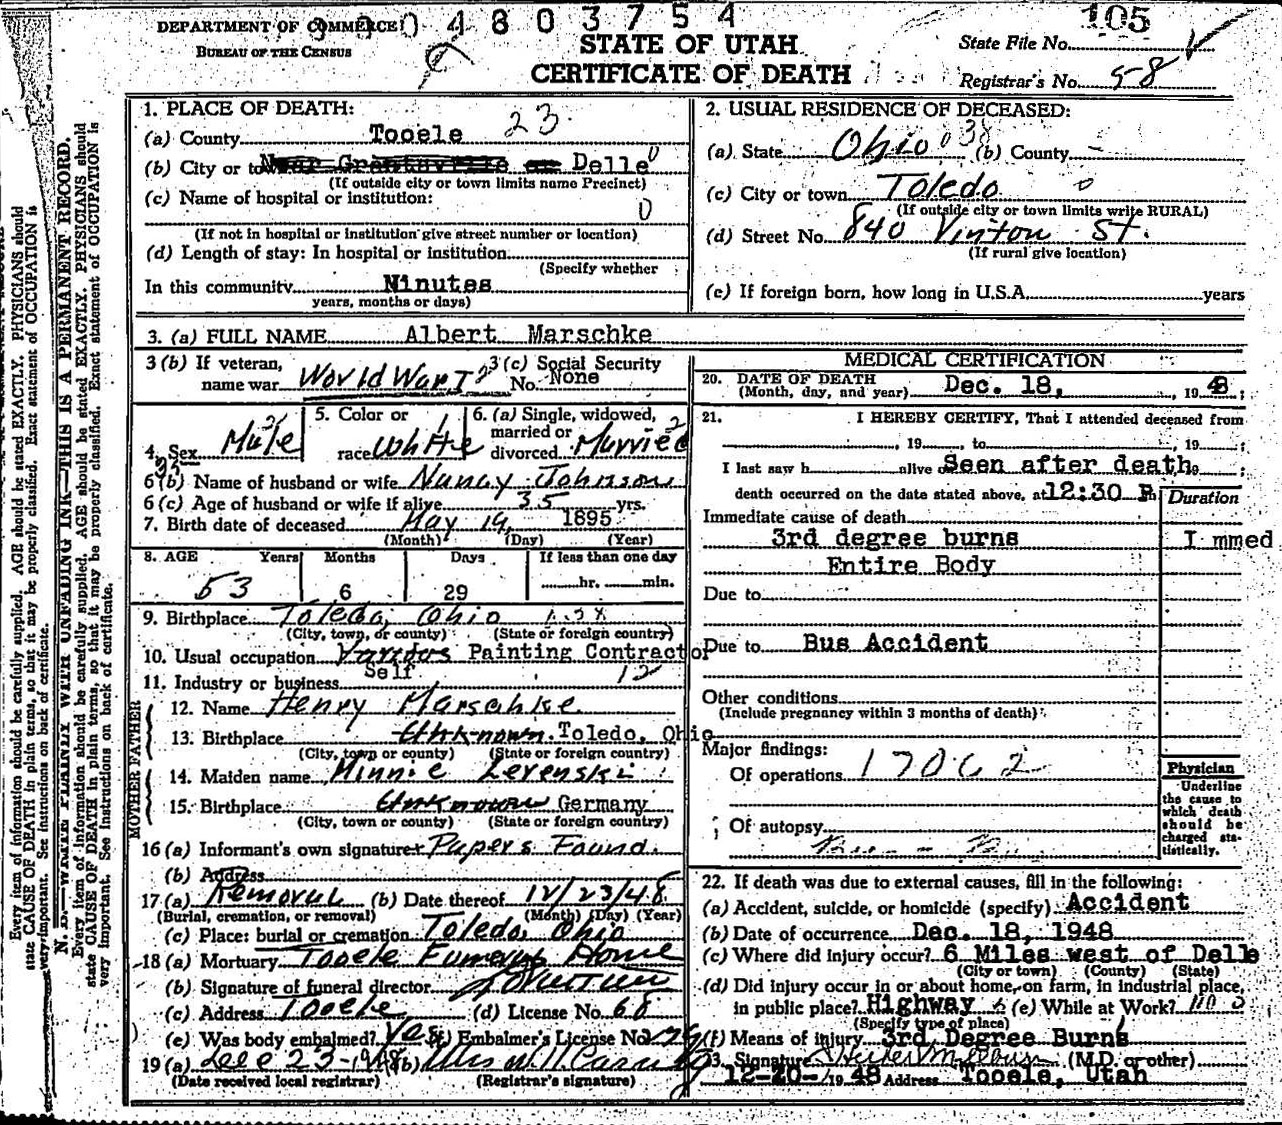 DEPARTMENT OF COMMERCE
BUREAU OF THE CENSUS
0 4 8 0 3 7 5 4
STATE OF UTAH
CERTIFICATE OF DEATH
105
State File No.
Registrar's No. 58
1. PLACE OF DEATH:
(a) County Tooele 23
(b) City or town Near Grantsville or Delle 0
(If outside city or town limits name Precinct)
(c) Name of hospital or institution:
0
(If not in hospital or institution give street number or location)
(d) Length of stay: In hospital or institution
(Specify whether
In this community Minutes
years, months or days)
2. USUAL RESIDENCE OF DECEASED:
(a) State Ohio 038 (b) County -
(c) City or town Toledo 0
(If outside city or town limits write RURAL)
(d) Street No. 840 Vinton St.
(If rural give location)
(e) If foreign born, how long in U.S.A. years
3. (a) FULL NAME Albert Marschke
3 (b) If veteran, name war World War I 2
3 (c) Social Security No. None
4. Sex Male
5. Color or race White
6. (a) Single, widowed, married or divorced Married
6 (b) Name of husband or wife Nancy Johnson
6 (c) Age of husband or wife if alive 35 yrs.
7. Birth date of deceased May 19, 1895
(Month) (Day) (Year)
8. AGE Years Months Days If less than one day
53 6 29 hr. min.
9. Birthplace Toledo, Ohio 138
(City, town, or county) (State or foreign country)
10. Usual occupation Various Painting Contractor
11. Industry or business Self 12
FATHER
12. Name Henry Marschke
13. Birthplace Unknown Toledo, Ohio
(City, town or county) (State or foreign country)
MOTHER
14. Maiden name Minnie Levenski
15. Birthplace Unknown Germany
(City, town or county) (State or foreign country)
16 (a) Informant's own signature Papers Found.
(b) Address
17 (a) Removal (b) Date thereof 12/23/48
(Burial, cremation, or removal) (Month) (Day) (Year)
(c) Place: burial or cremation Toledo, Ohio
18 (a) Mortuary Tooele Funeral Home
(b) Signature of funeral director
(c) Address Tooele (d) License No. 68
(e) Was body embalmed? Yes (f) Embalmer's License No.
19 (a) Dec 23-1948 (b) Mrs
(Date received local registrar) (Registrar's signature)
MEDICAL CERTIFICATION
20. DATE OF DEATH
(Month, day, and year) Dec. 18, 1948;
21. I HEREBY CERTIFY, That I attended deceased from
, 19 , to , 19 ;
I last saw h alive o Seen after death ;
death occurred on the date stated above, at 12:30 P. Duration
Immediate cause of death
3rd degree burns Immed
Entire Body
Due to
Due to Bus Accident
Other conditions
(Include pregnancy within 3 months of death)
Major findings:
Of operations 17062
Of autopsy
Physician
Underline
the cause to
which death
should be
charged sta-
tistically.
22. If death was due to external causes, fill in the following:
(a) Accident, suicide, or homicide (specify) Accident
(b) Date of occurrence Dec. 18, 1948
(c) Where did injury occur? 6 Miles west of Delle
(City or town) (County) (State)
(d) Did injury occur in or about home, on farm, in industrial place,
in public place? Highway (e) While at Work? no
(Specify type of place)
(f) Means of injury 3rd Degree Burns
23. Signature (M.D. or other)
12-20-1948 Address Tooele, Utah
N. B.—WRITE PLAINLY WITH UNFADING INK—THIS IS A PERMANENT RECORD.
Every item of information should be carefully supplied. AGE should be stated EXACTLY. PHYSICIANS should
state CAUSE OF DEATH in plain terms, so that it may be properly classified. Exact statement of OCCUPATION is
very important. See instructions on back of certificate.
Every item of information should be carefully supplied. AGE should be stated EXACTLY. PHYSICIANS should
state CAUSE OF DEATH in plain terms, so that it may be properly classified. Exact statement of OCCUPATION is
very important. See instructions on back of certificate.